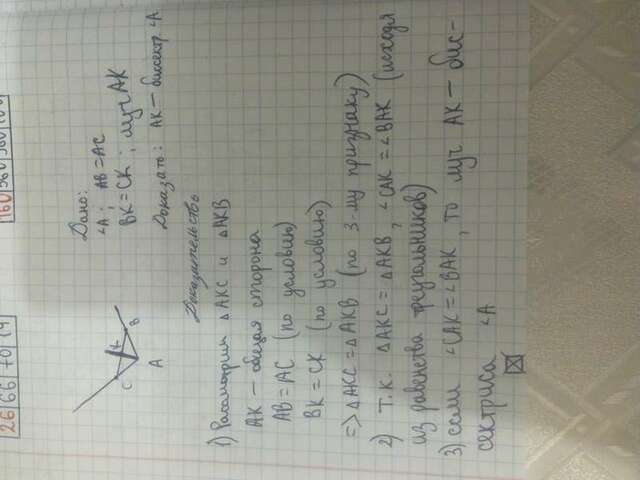 26 66 70
160 360 360
C K B
A
Дано:
∠A; AB = AC
BK = CK; луч AK
Доказать: AK — биссектр. ∠A
Доказательство
1) Рассмотрим △AKC и △AKB
AK — общая сторона
AB = AC (по условию)
BK = CK (по условию)
=> △AKC = △AKB (по 3-му признаку)
2) Т.К. △AKC = △AKB, ∠CAK = ∠BAK (исходя
из равенства треугольников)
3) если ∠CAK = ∠BAK, то луч AK — бис-
сектриса ∠A